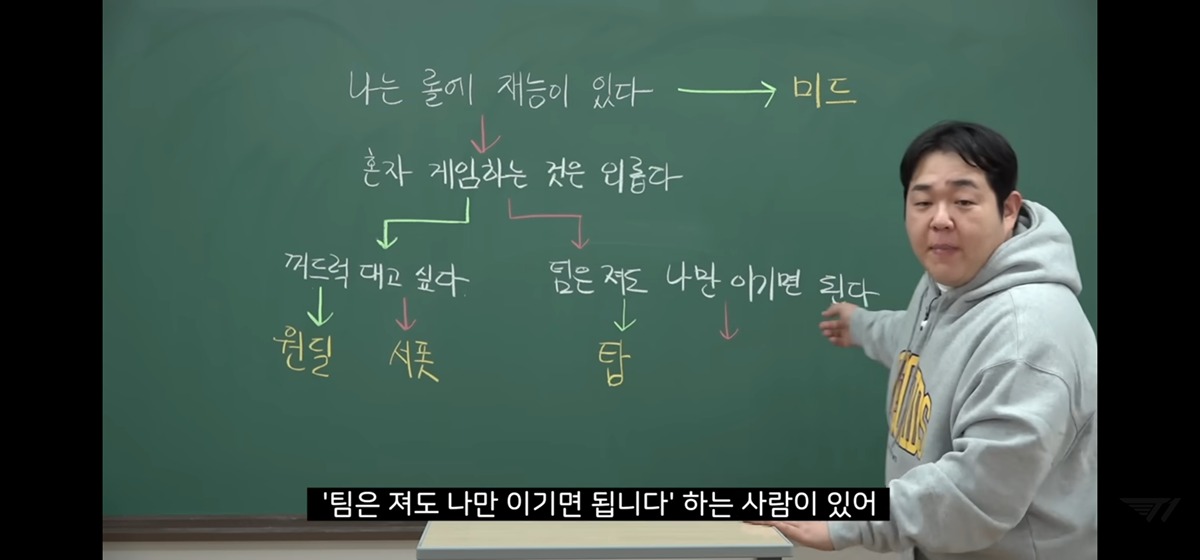 나는 롤에 재능이 있다 → 미드
혼자 게임하는 것은 외롭다
꺼드럭 대고 싶다. 팀은 져도 나만 이기면 된다
원딜 서폿 탑
'팀은 져도 나만 이기면 됩니다' 하는 사람이 있어
T1